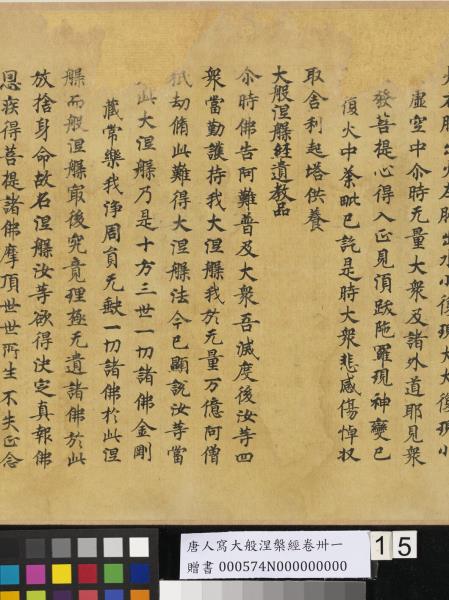 出水小復現大大復現小
虛空中尒時无量大衆及諸外道耶見衆
發菩提心得入正見湏跋陁羅現神變已
復火中茶毗已訖是時大衆悲感傷悼収
取舍利起塔供養
大般涅槃經遺教品
尒時佛告阿難普及大衆吾滅度後汝等四
衆當勤護持我大涅槃我於无量万億阿僧
祇劫脩此難得大涅槃法今已顯說汝等當
此大涅槃乃是十方三世一切諸佛金剛
藏常樂我浄周圓无缺一切諸佛於此涅
槃而般涅槃寂後究竟理極无遺諸佛於此
放捨身命故名涅槃汝等欲得决定真報佛
恩疾得菩提諸佛摩頂世世所生不失正念
唐人寫大般涅槃經卷卅一
贈書 000574N000000000
15